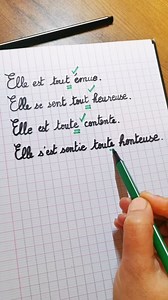 Elle est tout émue.
Elle se sent tout heureuse.
Elle est toute contente.
Elle s'est sentie toute honteuse.